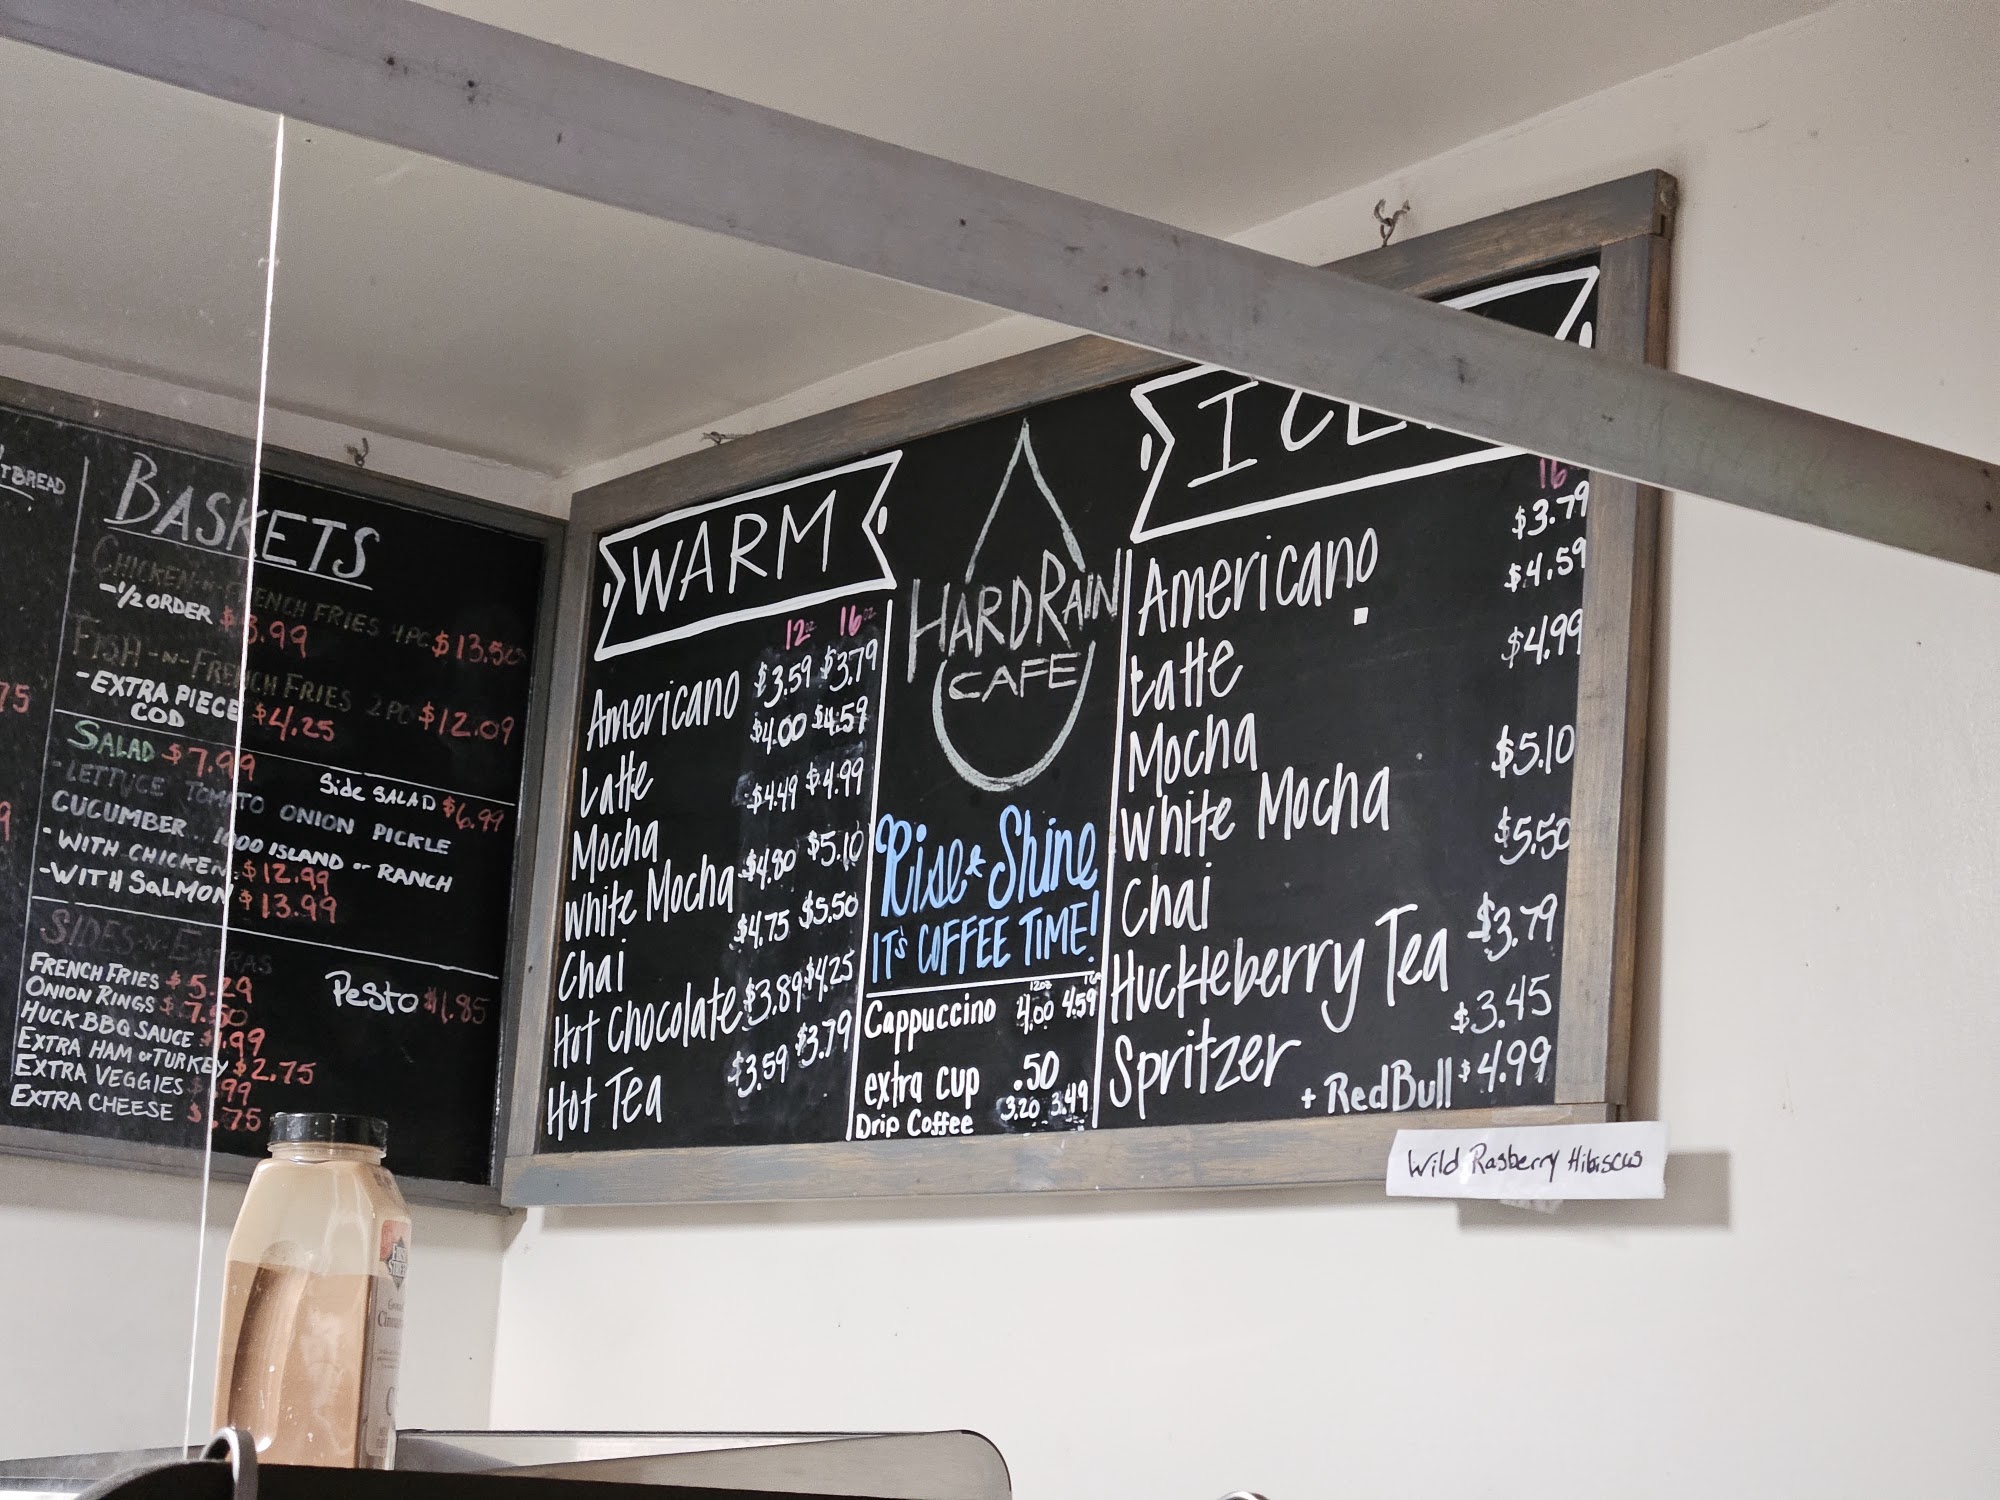 TBREAD
BASKETS
CHICKEN-N-FRENCH FRIES 4PC $13.50
-1/2 ORDER $8.99
FISH-N-FRENCH FRIES 2PC $12.09
-EXTRA PIECE $4.25
COD
SALAD $7.99
Side SALAD $6.99
-LETTUCE TOMATO ONION PICKLE
CUCUMBER 1000 ISLAND or RANCH
-WITH CHICKEN $12.99
-WITH SALMON $13.99
SIDES-N-EXTRAS
FRENCH FRIES $5.29
ONION RINGS $7.50
HUCK BBQ SAUCE $1.99
EXTRA HAM or TURKEY $2.75
EXTRA VEGGIES $.99
EXTRA CHEESE $.75
Pesto $1.85
WARM
12oz 16oz
Americano $3.59 $3.79
Latte $4.00 $4.59
Mocha $4.49 $4.99
White Mocha $4.80 $5.10
Chai $4.75 $5.50
Hot Chocolate $3.89 $4.25
Hot Tea $3.59 $3.79
HARDRAIN
CAFE
Rise & Shine
IT's COFFEE TIME!
12oz 16
Cappuccino 4.00 4.59
extra cup .50
Drip Coffee 3.20 3.49
16
Americano $3.79
Latte $4.59
Mocha $4.99
White Mocha $5.10
Chai $5.50
Huckleberry Tea $3.79
Spritzer $3.45
+ RedBull $4.99
Wild Rasberry Hibiscus